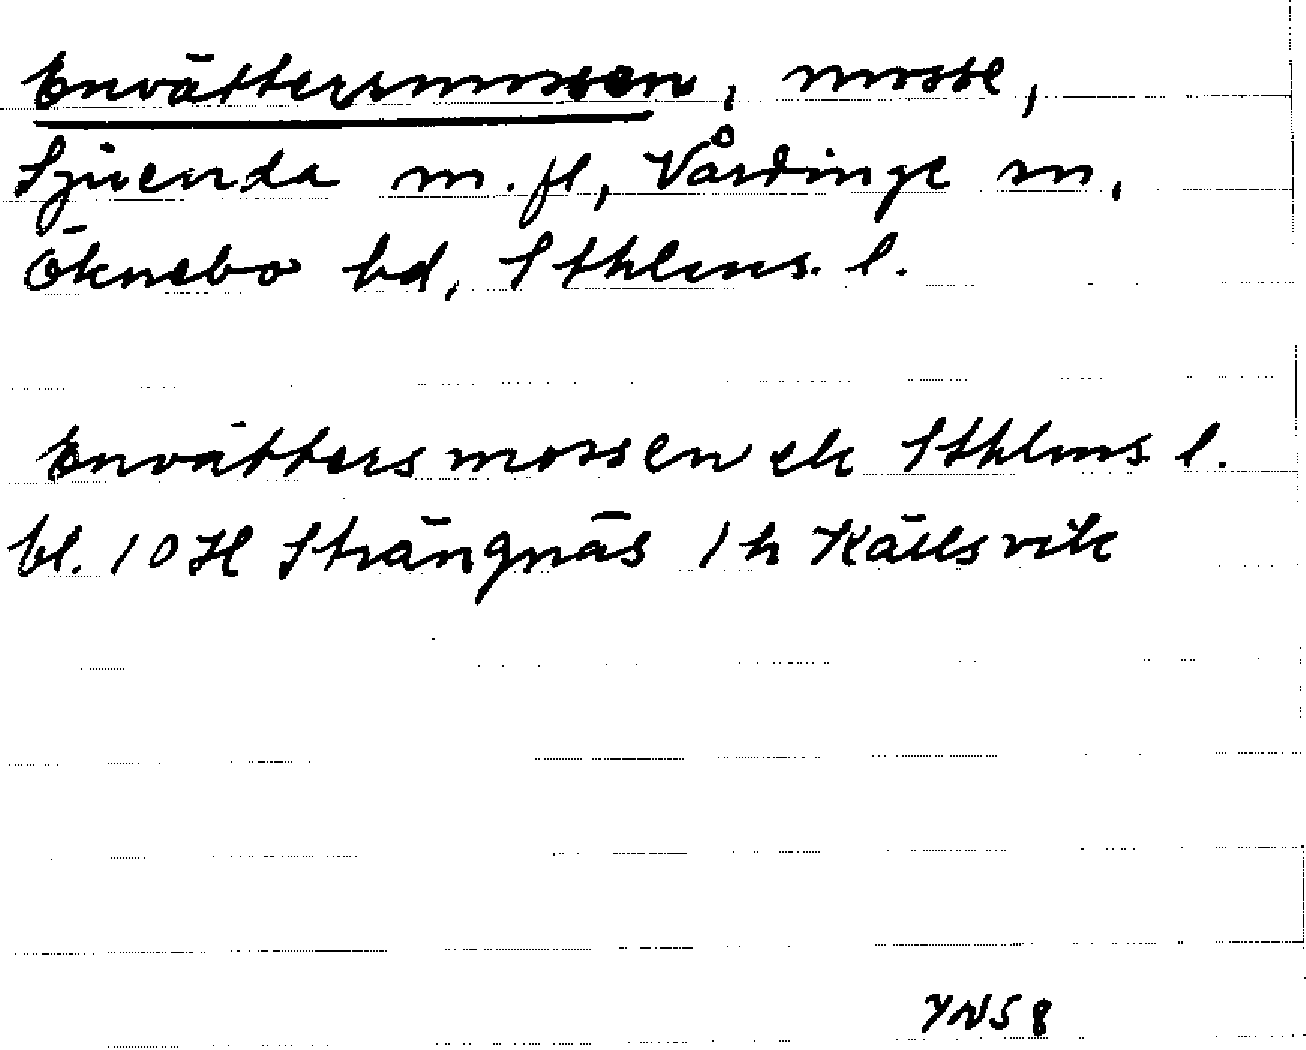 Envättersmossen, mosse,
Sjuenda m.fl, Vårdinge sn,
Öknebo hd, Sthlms. l.
Envättersmossen ek Sthlms l.
bl. 10H Strängnäs 1h Källsvik
YNS 8